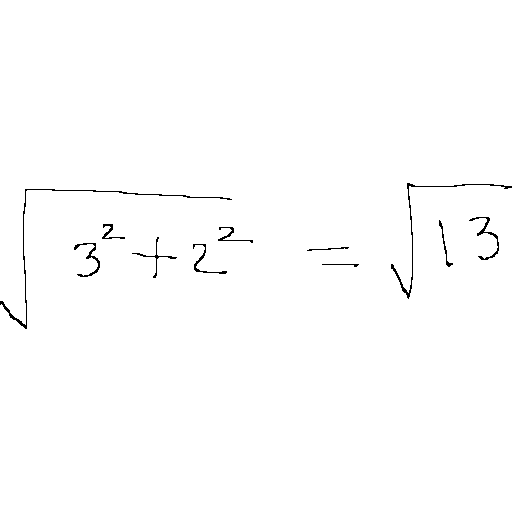 √(3² + 2²) = √13